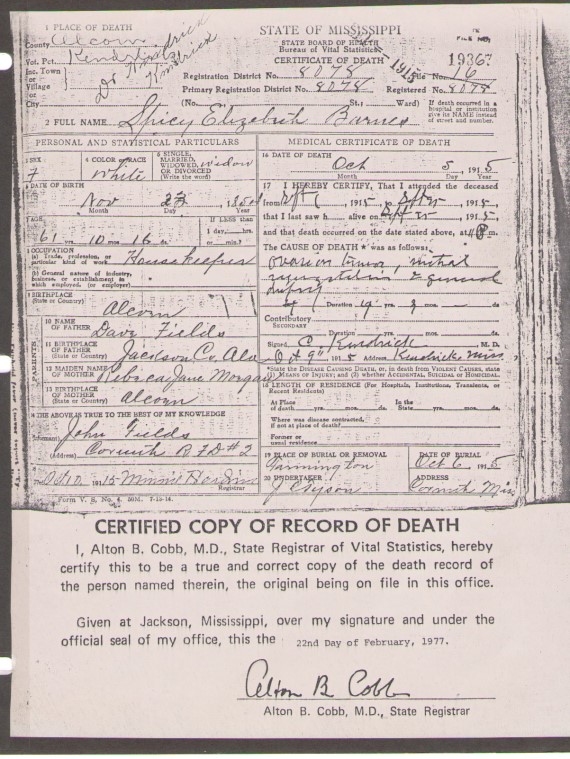 1 PLACE OF DEATH
STATE OF MISSISSIPPI
County Alcorn
STATE BOARD OF HEALTH
Bureau of Vital Statistics
CERTIFICATE OF DEATH
Vot. Pct. Kendrick
1936
Inc. Town
or
Village
or
City
Registration District No. 8078 File No. 16
Primary Registration District No. 8078 Registered No. 8078
(No. St.; Ward)
If death occurred in a hospital or institution give its NAME instead of street and number.
2 FULL NAME Spicy Elizabeth Barnes
PERSONAL AND STATISTICAL PARTICULARS
SEX F
4 COLOR or RACE White
5 SINGLE, MARRIED, WIDOWED, OR DIVORCED (Write the word) widow
6 DATE OF BIRTH
Nov
Month Day Year
AGE
IF LESS than
61 yrs. 10 mos. 16 ds.
1 day, hrs.
or min.?
OCCUPATION
(a) Trade, profession, or particular kind of work Housekeeper
(b) General nature of industry, business, or establishment in which employed, (or employer)
9 BIRTHPLACE
(State or Country) Alcorn
10 NAME OF FATHER Dave Fields
11 BIRTHPLACE OF FATHER (State or Country) Jackson Co. Ala
12 MAIDEN NAME OF MOTHER Rebeca Jane Morgan
13 BIRTHPLACE OF MOTHER (State or Country) Alcorn
PARENTS
THE ABOVE IS TRUE TO THE BEST OF MY KNOWLEDGE
John Fields
(Address) Corinth R F D # 2
1915 Minnie
Registrar
Form V. S. No. 4. 50M. 7-15-14.
MEDICAL CERTIFICATE OF DEATH
16 DATE OF DEATH
Oct 5, 1915
Month Day Year
17 I HEREBY CERTIFY, That I attended the deceased
from 1915, to 1915,
that I last saw h alive on 1915,
and that death occurred on the date stated above, at m.
The CAUSE OF DEATH * was as follows:
ovarian tumor, mitral
regurgitation & general
dropsy
Duration yrs. mos. ds.
Contributory
SECONDARY
Duration yrs. mos. ds.
Signed, C. Kendrick M. D.
1915 Address Kendrick Miss
*State the DISEASE CAUSING DEATH, or, in death from VIOLENT CAUSES, state (1) MEANS OF INJURY; and (2) whether ACCIDENTAL, SUICIDAL or HOMICIDAL.
18 LENGTH OF RESIDENCE (For Hospitals, Institutions, Transients, or Recent Residents)
At Place of death yrs. mos. ds. In the State yrs. mos. ds.
Where was disease contracted, if not at place of death?
Former or usual residence
19 PLACE OF BURIAL OR REMOVAL DATE OF BURIAL
Farmington Oct 6, 1915
20 UNDERTAKER ADDRESS
Corinth Miss
CERTIFIED COPY OF RECORD OF DEATH
I, Alton B. Cobb, M.D., State Registrar of Vital Statistics, hereby
certify this to be a true and correct copy of the death record of
the person named therein, the original being on file in this office.
Given at Jackson, Mississippi, over my signature and under the
official seal of my office, this the 22nd Day of February, 1977.
Alton B Cobb
Alton B. Cobb, M.D., State Registrar